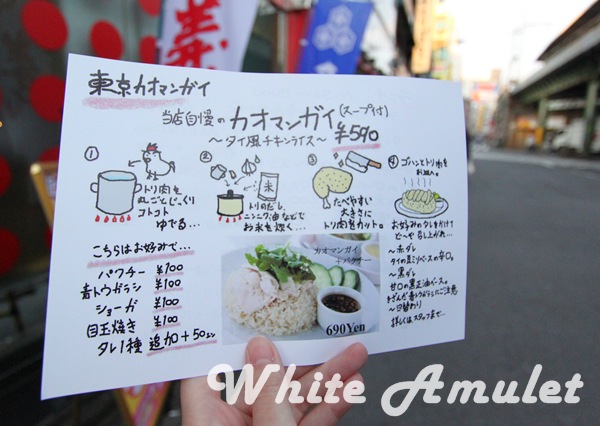 東京カオマンガイ
当店自慢のカオマンガイ(スープ付)
～タイ風チキンライス～ ¥590
①
トリ肉を
丸ごとじっくり
コトコト
ゆでる…
②
米
トリのだし、
ニンニク、油などで
お米を炊く…
③
たべやすい
大きさに
トリ肉をカット。
④
ゴハンとトリ肉を
お皿へ。
お好みのタレをかけて
ど～ぞ召し上がれ…
～赤ダレ
タイの豆ミソベースの辛口。
～黒ダレ
甘口の黒正油ベース。
きざんだ青トウガラシにご注意
～日替わり
詳しくはスタッフまで…
こちらはお好みで…
パクチー ¥100
青トウガラシ ¥100
ショーガ ¥100
目玉焼き ¥100
タレ1種 追加+50
カオマンガイ
+パクチー
690Yen
White Amulet